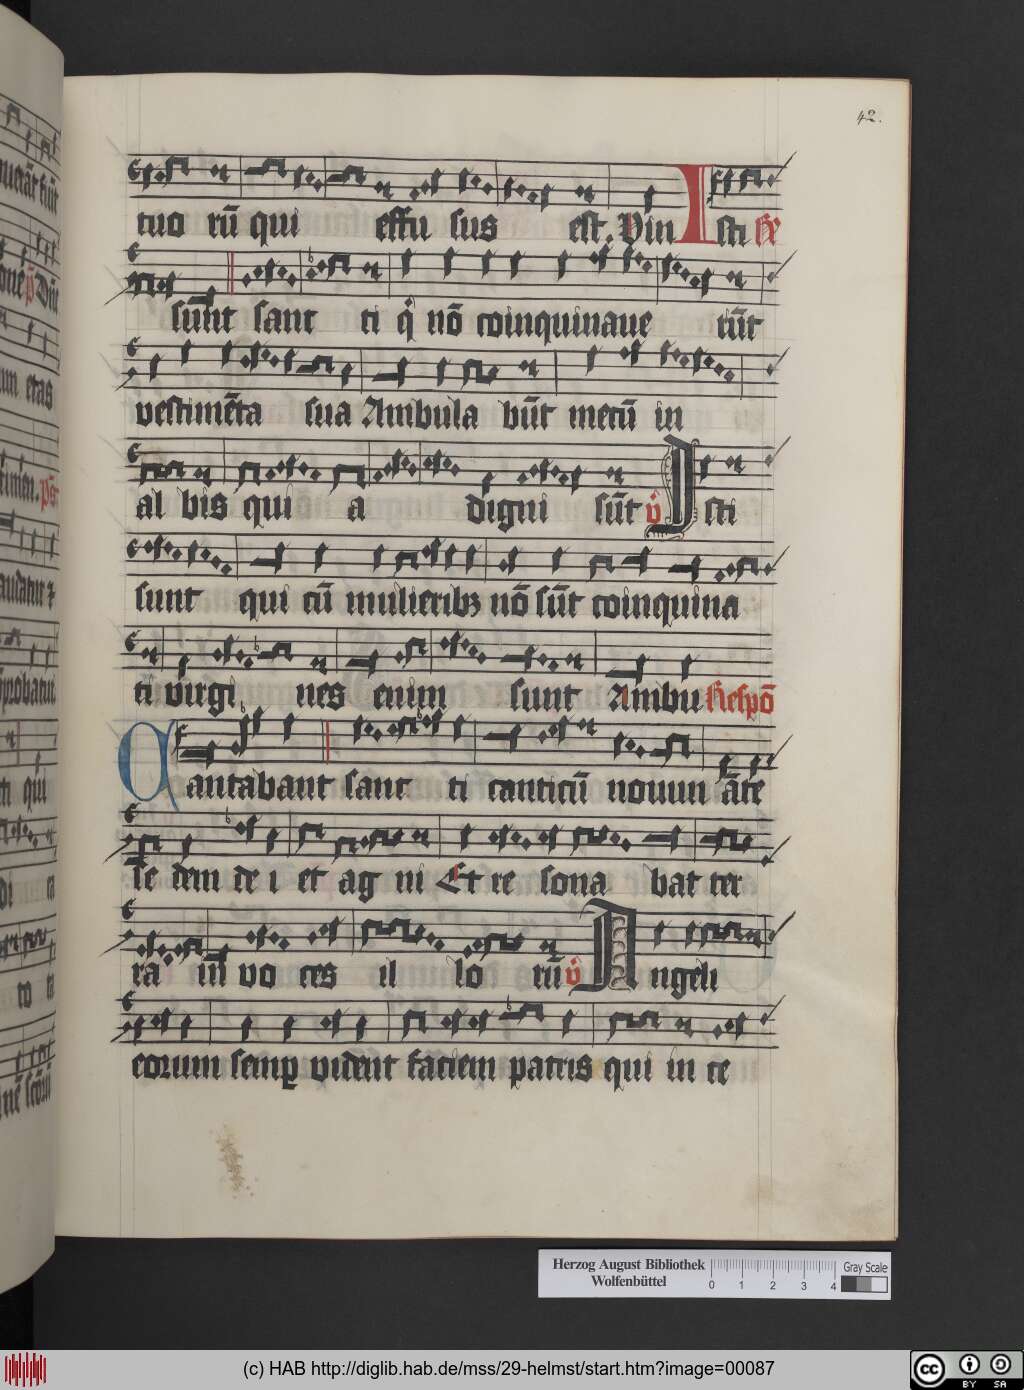 42.
tuo rū qui effu sus est. Vin Isti
sūnt sanc ti q nō coinquinaue rūt
vestimēta sua Ambula būt mecū in
al bis qui a digni sūt Isti
sunt qui cū mulierib nō sūt coinquina
ti virgi nes enim sunt Ambu Respō
Cantabant sanc ti canticū nouum āte
se dem de i et ag ni Et re sona bat ter
ra in vo ces il lo rū Angeli
eorum semp vident faciem patris qui in ce
Herzog August Bibliothek
Wolfenbüttel
0 1 2 3 4
Gray Scale
(c) HAB http://diglib.hab.de/mss/29-helmst/start.htm?image=00087
cc BY SA